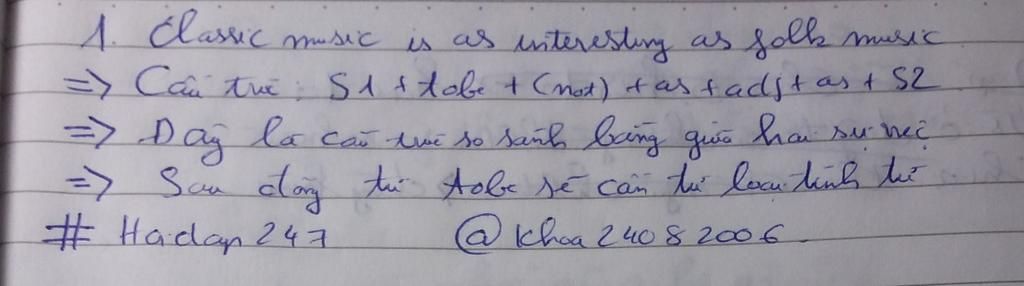 1. Classic music is as interesting as folk music
=> Cấu trúc: S1 + tobe + (not) + as + adj + as + S2
=> Đây là cấu trúc so sánh bằng giữa hai sự việc
=> Sau động từ tobe sẽ cần từ loại tính từ
# Hoidap247 @Khoa24082006